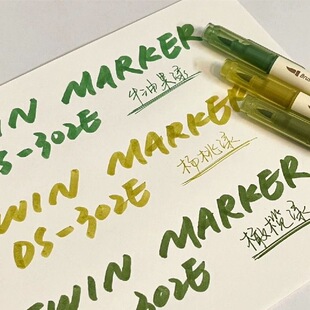 IN MARKER
S-302E
牛油果漾
WIN MARKER
DS-302E
杨桃漾
WIN MARKER
302E
橄榄漾